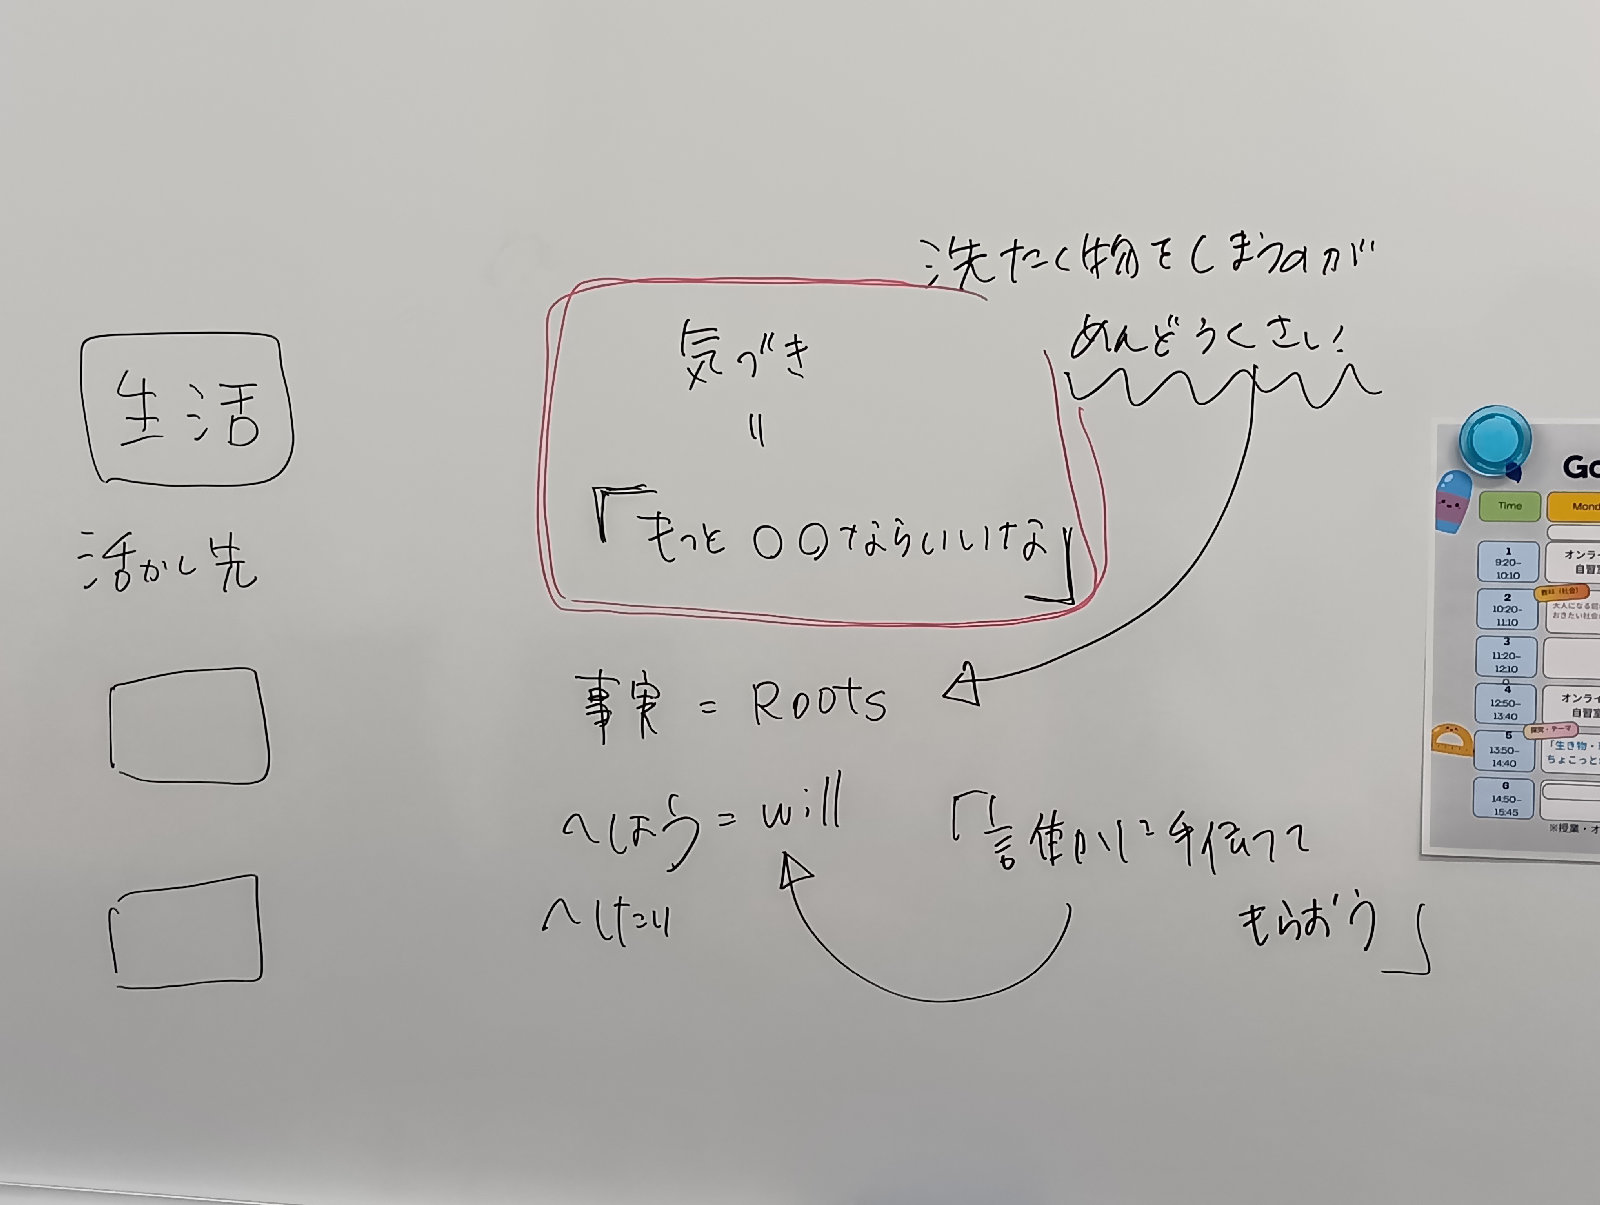 生活
活かし先
洗たく物をしまうのが
めんどうくさい!
気づき
=
『もっと〇〇ならいいな』
事実 = Roots
~しよう = will
~したい
手伝って
もらおう」
Time
Mond
1
9:20-
10:10
オンライ
自習室
2
10:20-
11:10
教科(社会)
大人になる前
おきたい社会
3
11:20-
12:10
4
12:50-
13:40
オンライ
自習室
5
13:50-
14:40
探究・テーマ
「生き物・
ちょこっと
6
14:50-
15:45
※授業・オ